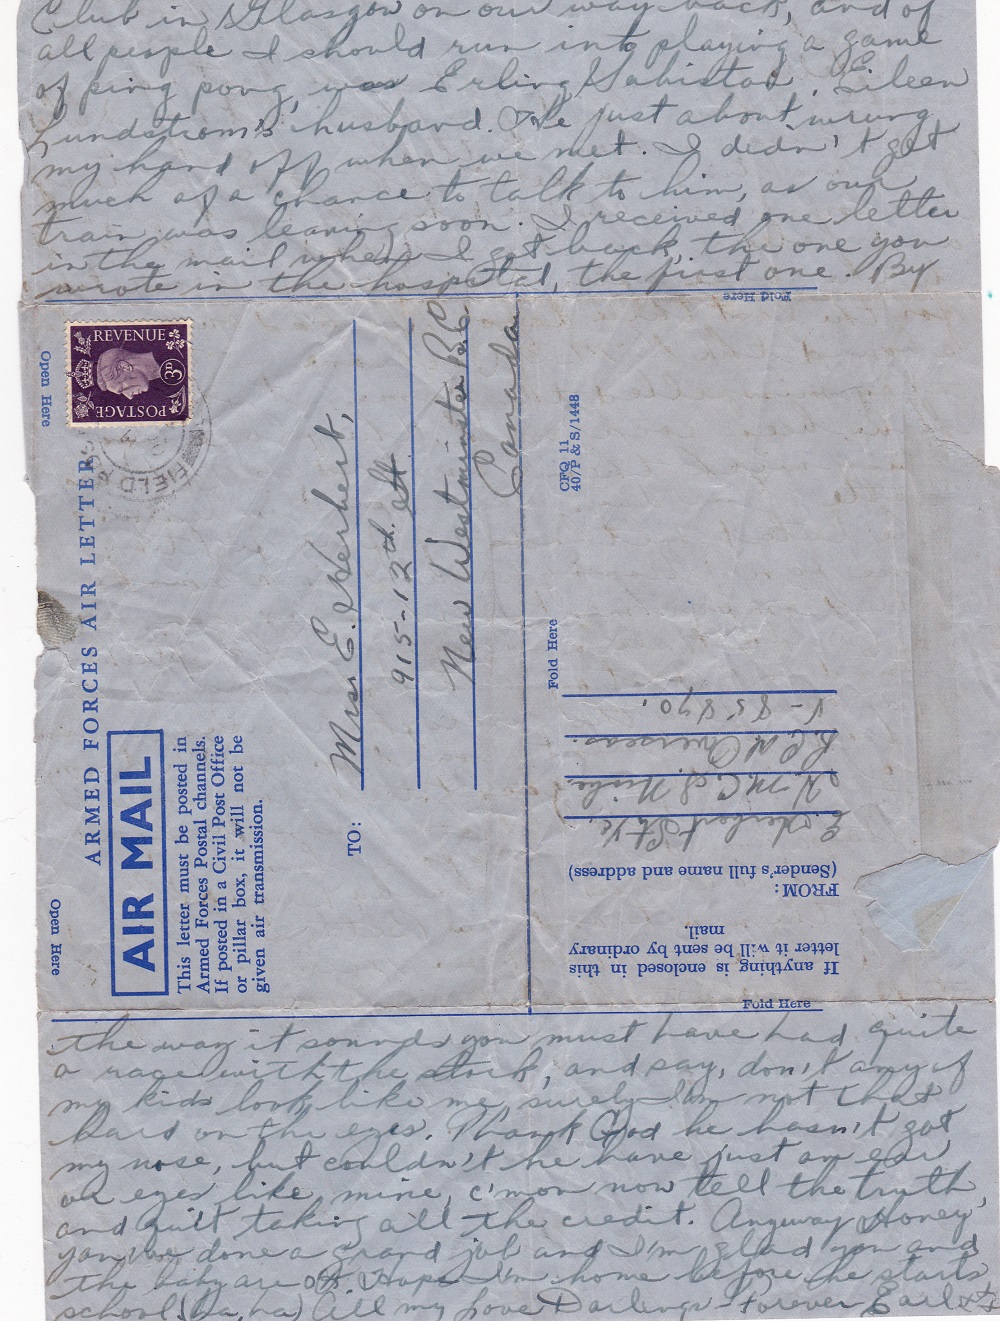 Club in Glasgow on our way back, and of
all people I should run into playing a game
of ping pong, was Erling Eileen
Lundstrom's husband. He just about wrung
my hand off when we met. I didn't get
much of a chance to talk to him, as our
train was leaving soon. I received one letter
in the mail when I got back, the one you
wrote in the hospital, the first one. By
Fold Here
Open Here
REVENUE
3D
POSTAGE
FIELD
ARMED FORCES AIR LETTER
AIR MAIL
This letter must be posted in
Armed Forces Postal channels.
If posted in a Civil Post Office
or pillar box, it will not be
given air transmission.
Open Here
TO:
Mrs. E. Herbert,
915-12th. St
New Westminster B.C.
Canada
CFQ 11
40/P & S/1448
Fold Here
If anything is enclosed in this
letter it will be sent by ordinary
mail.
FROM:
(Sender's full name and address)
E. Herbert
H.M.C.S.
R.C.N. Overseas.
V-85890.
Fold Here
the way it sounds you must have had quite
a race with the stork, and say, don't any of
my kids look like me, surely I'm not that
hard on the eyes. Thank God he hasn't got
my nose, but couldn't he have just an ear
or eyes like mine, c'mon now tell the truth,
and quit taking all the credit. Anyway Honey,
you've done a grand job and I'm glad you and
the baby are OK Hope I'm home before he starts
school (ha, ha) All my Love Darlings - Forever Earl